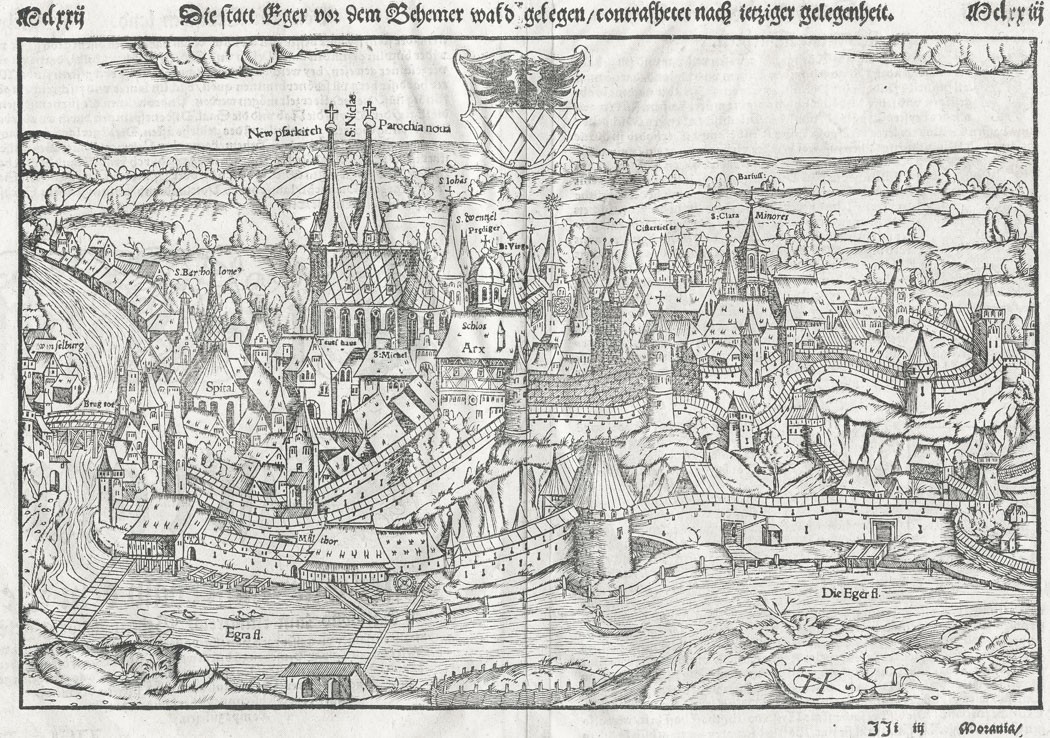 Mclxxij Die statt Eger vor dem Behemer wald gelegen/contrafhetet nach ietziger gelegenheit. Mclxxiij
New pfarkirch
S: Niclas
Parochia noua
S. Iohãs
Barfuss:
S. Wentzel
Prediger
B: Virgĩ
Cistertiẽser
S: Clara
Minores
S. Bartholome⁹
Schlos
Arx
Teutsch haus
S: Michel
Spital
Brug tor
Mül thor
Die Eger fl.
Egra fl.
HK
JJi iij Morauia/